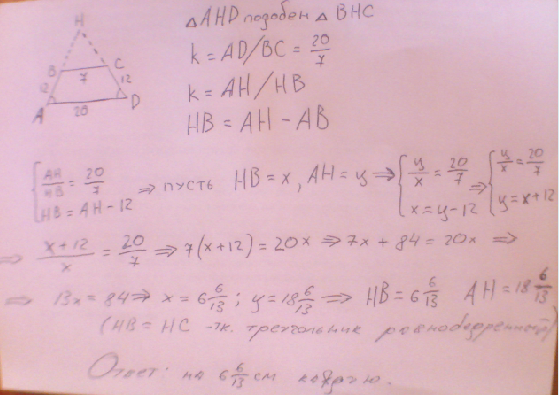 H
△AHD подобен △BHC
B C
7
12 12
A D
20
k = AD/BC = 20/7
k = AH/HB
HB = AH - AB
{AH/HB = 20/7
HB = AH - 12
⇒ пусть HB = x, AH = y ⇒ {y/x = 20/7
x = y - 12
⇒ {y/x = 20/7
y = x + 12
⇒ (x+12)/x = 20/7 ⇒ 7(x+12) = 20x ⇒ 7x + 84 = 20x ⇒
⇒ 13x = 84 ⇒ x = 6 6/13 ; y = 18 6/13 ⇒ HB = 6 6/13 AH = 18 6/13
(HB = HC -т.к. треугольник равнобедренный)
Ответ: на 6 6/13 см каждую.